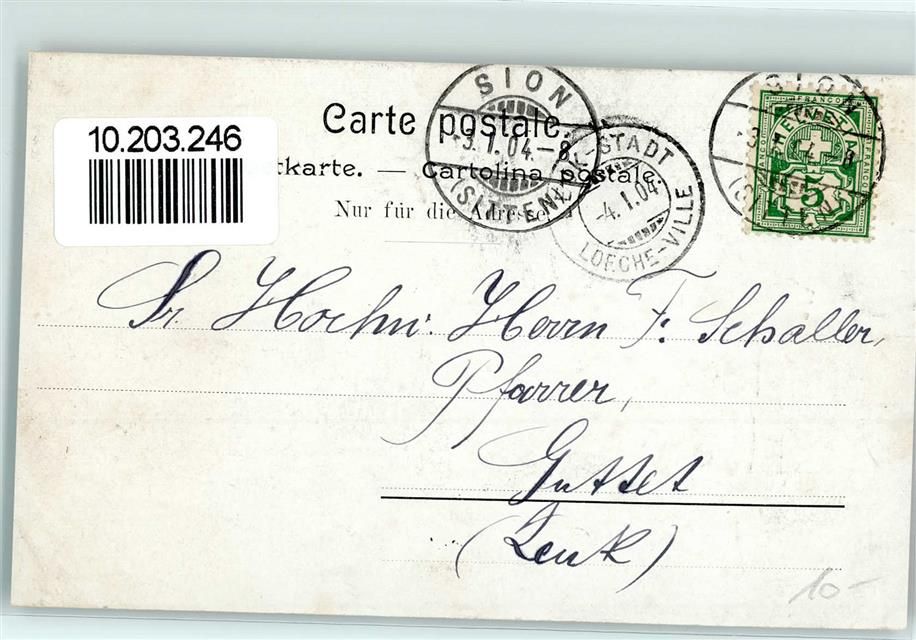 10.203.246
Carte postale.
tkarte. — Cartolina postale.
Nur für die Adresse.
SION
3. I. 04.-8
(SITTEN)
LEUK-STADT
-4. I. 04.
LOECHE-VILLE
SION
FRANCO
HELVETIA
5
Sr. Hochw. Herrn F. Schaller,
Pfarrer,
Guttet
(Leuk)
10-